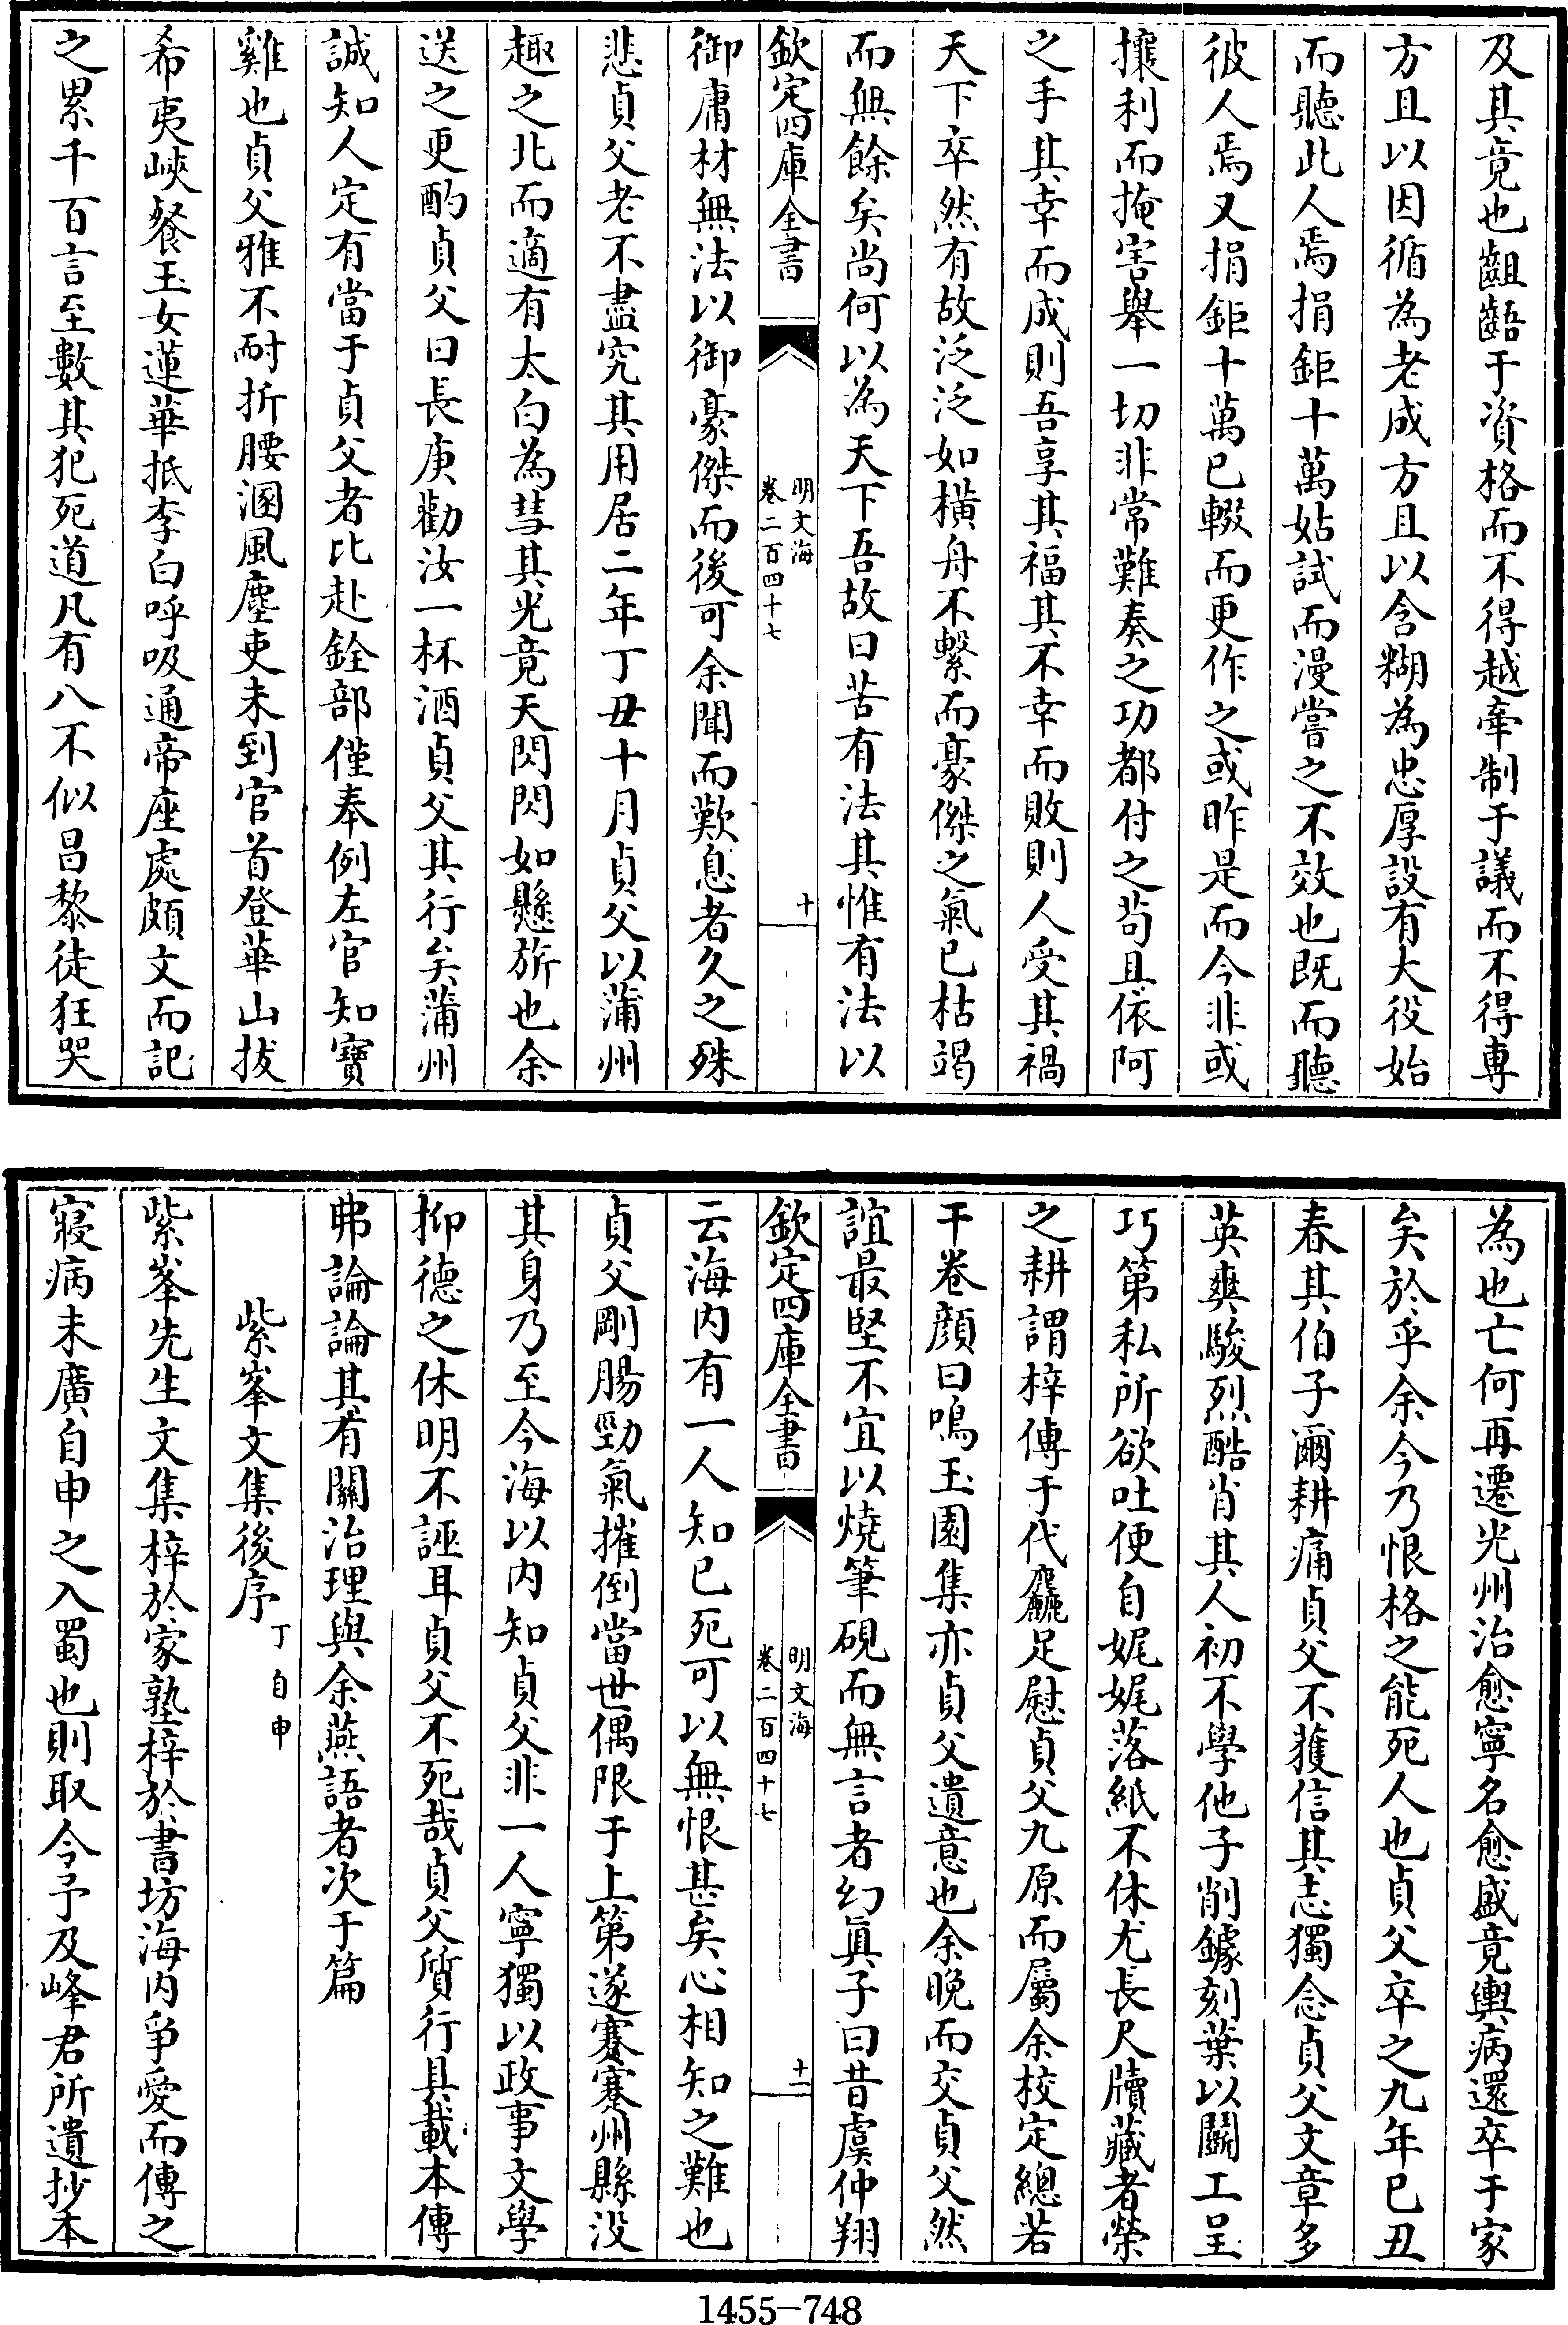 及其竟也齟齬于資格而不得越牽制于議而不得專
方且以因循為老成方且以含糊為忠厚設有大役始
而聽此人焉捐鉅十萬姑試而漫嘗之不效也既而聽
彼人焉又捐鉅十萬已輟而更作之或昨是而今非或
攘利而掩害舉一切非常難奏之功都付之苟且依阿
之手其幸而成則吾享其福其不幸而敗則人受其禍
天下卒然有故泛泛如橫舟不繫而豪傑之氣已枯竭
而無餘矣尚何以為天下吾故曰苦有法其惟有法以
欽定四庫全書
明文海
卷二百四十七
十
御庸材無法以御豪傑而後可余聞而歎息者久之殊
悲貞父老不盡究其用居二年丁丑十月貞父以蒲州
趣之北而適有太白為彗其光竟天閃閃如懸旂也余
送之更酌貞父曰長庚勸汝一杯酒貞父其行矣蒲州
誠知人定有當于貞父者比赴銓部僅奉例左官知寶
雞也貞父雅不耐折腰溷風塵吏未到官首登華山拔
希夷峽餐玉女蓮華抵李白呼吸通帝座處頗文而記
之累千百言至數其犯死道凡有八不似昌黎徒狂哭
為也亡何再遷光州治愈寧名愈盛竟輿病還卒于家
矣於乎余今乃恨格之能死人也貞父卒之九年己丑
春其伯子爾耕痛貞父不獲信其志獨念貞父文章多
英爽駿烈酷肖其人初不學他子削鐻刻葉以鬬工呈
巧第私所欲吐便自娓娓落紙不休尤長尺牘藏者榮
之耕謂梓傳于代麤足慰貞父九原而屬余校定總若
干卷顏曰鳴玉園集亦貞父遺意也余晚而交貞父然
誼最堅不宜以燒筆硯而無言者幻真子曰昔虞仲翔
欽定四庫全書
明文海
卷二百四十七
十一
云海內有一人知己死可以無恨甚矣心相知之難也
貞父剛腸勁氣摧倒當世偶限于上第遂蹇蹇州縣沒
其身乃至今海以內知貞父非一人寧獨以政事文學
抑德之休明不誣耳貞父不死哉貞父質行具載本傳
弗論論其有關治理與余燕語者次于篇
紫峯文集後序 丁自申
紫峯先生文集梓於家塾梓於書坊海內爭愛而傳之
寢病未廣自申之入蜀也則取令予及峰君所遺抄本
1455-748